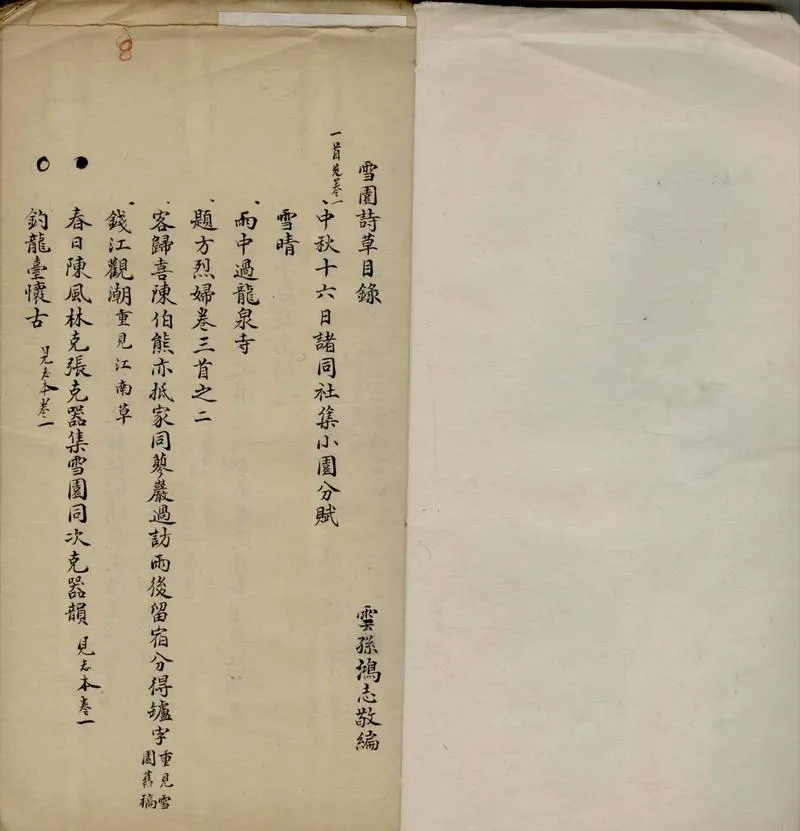 8
雪園詩草目錄 雲孫鴻志敬編
一首見卷一
中秋十六日諸同社集小園分賦
雪晴
雨中過龍泉寺
題方烈婦卷三首之二
客歸喜陳伯熊亦抵家同蓼巖過訪雨後留宿分得罏字 重見雪園舊稿
錢江觀潮 重見江南草
春日陳風林克張克器集雪園同次克器韻 見志本卷一
釣龍臺懷古 見志本卷二